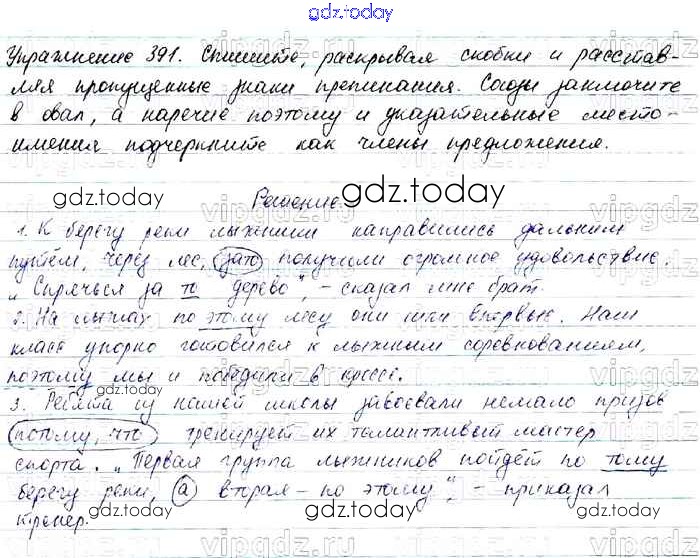 gdz.today
Упражнение 391. Спишите, раскрывая скобки и расстав-
ляя пропущенные знаки препинания. Союзы заключите
в овал, а наречие поэтому и указательные место-
имения подчеркните как члены предложения.
gdz.today gdz.today
Решение.
1. К берегу реки лыжники направились дальним
путём, через лес, зато получили огромное удовольствие.
„Спрячься за то дерево", – сказал мне брат.
2. На лыжах по этому лесу они шли впервые. Наш
класс упорно готовился к лыжным соревнованиям,
поэтому мы и победили в кроссе.
gdz.today gdz.today
3. Ребята из нашей школы завоевали немало призов
потому, что тренирует их талантливый мастер
спорта. „Первая группа лыжников пойдёт по тому
берегу реки, а вторая – по этому", – приказал
тренер.
gdz.today gdz.today